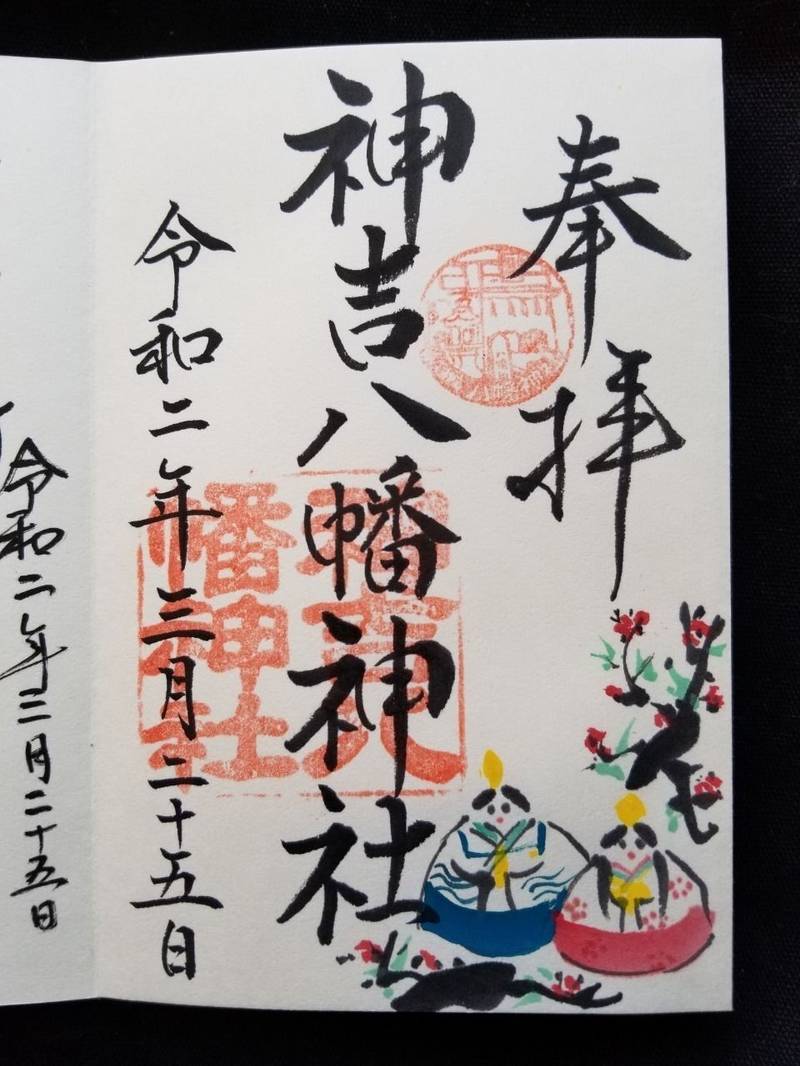 奉拝
神吉八幡神社
令和二年三月二十五日
令和二年二月二十五日